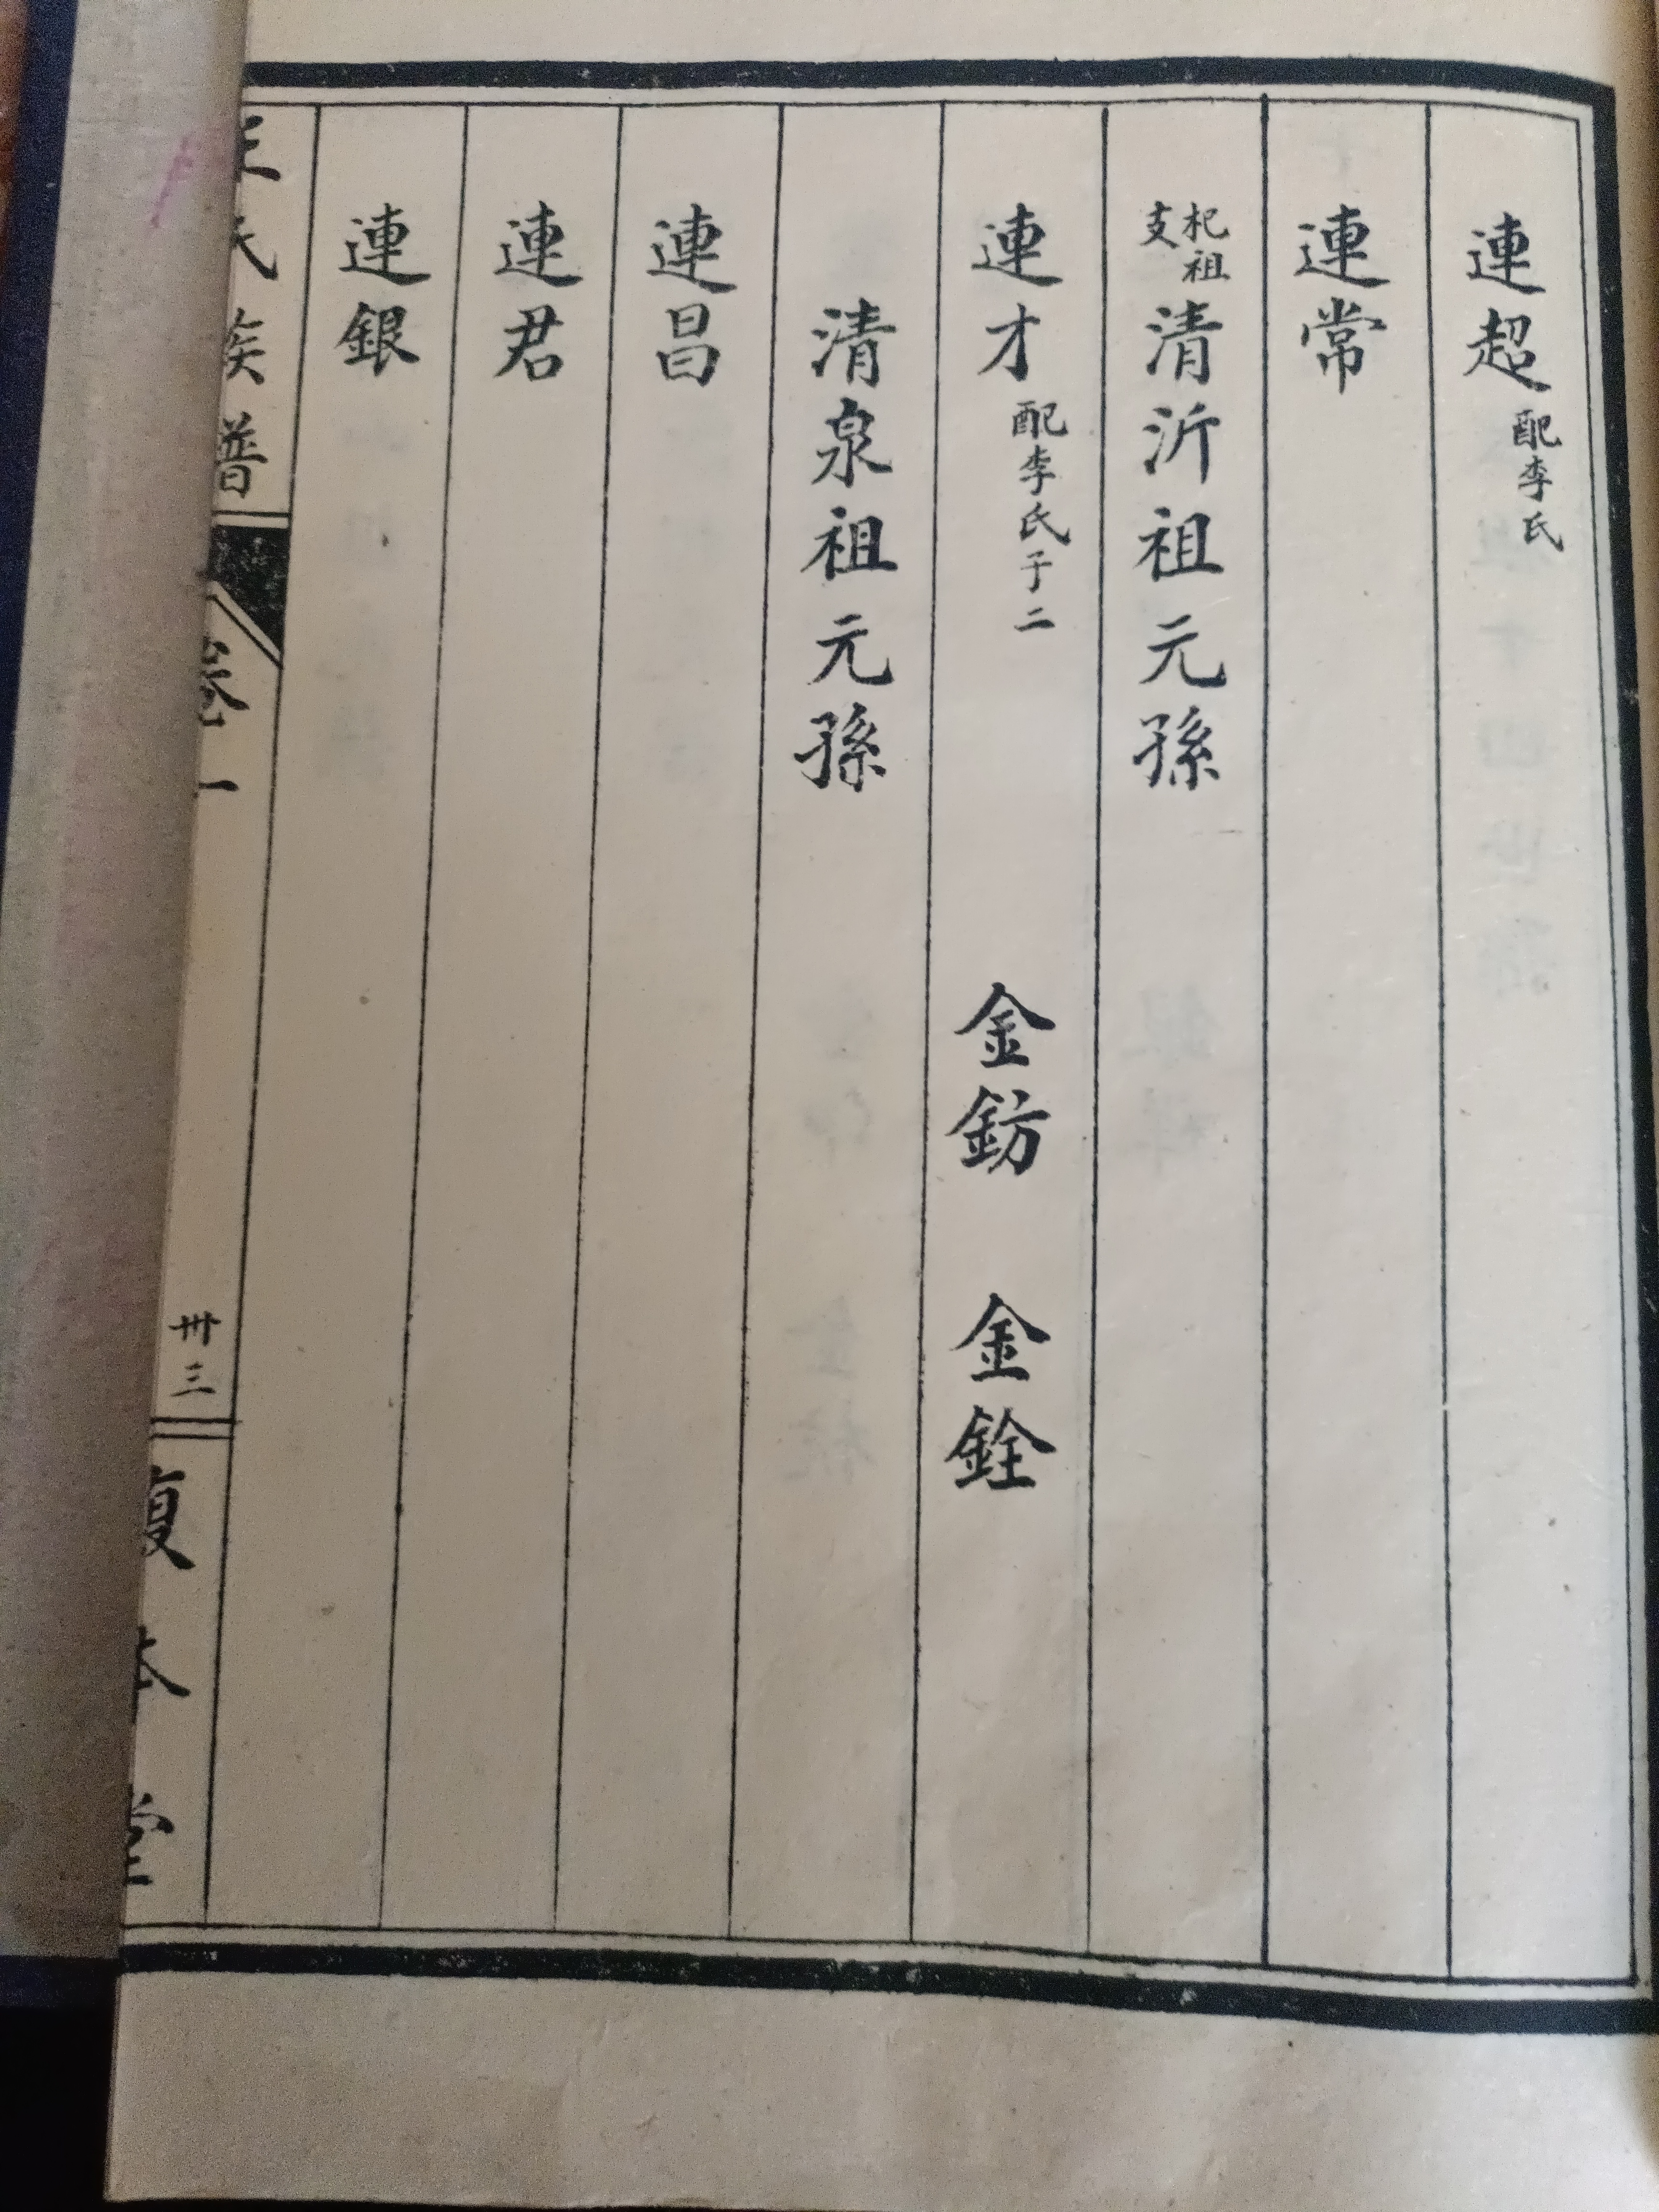 連超配李氏
連常
杞祖支清沂祖元孫
連才配李氏子二 金鈁 金銓
清泉祖元孫
連昌
連君
連銀
氏族譜 卷一 卅三 復本堂